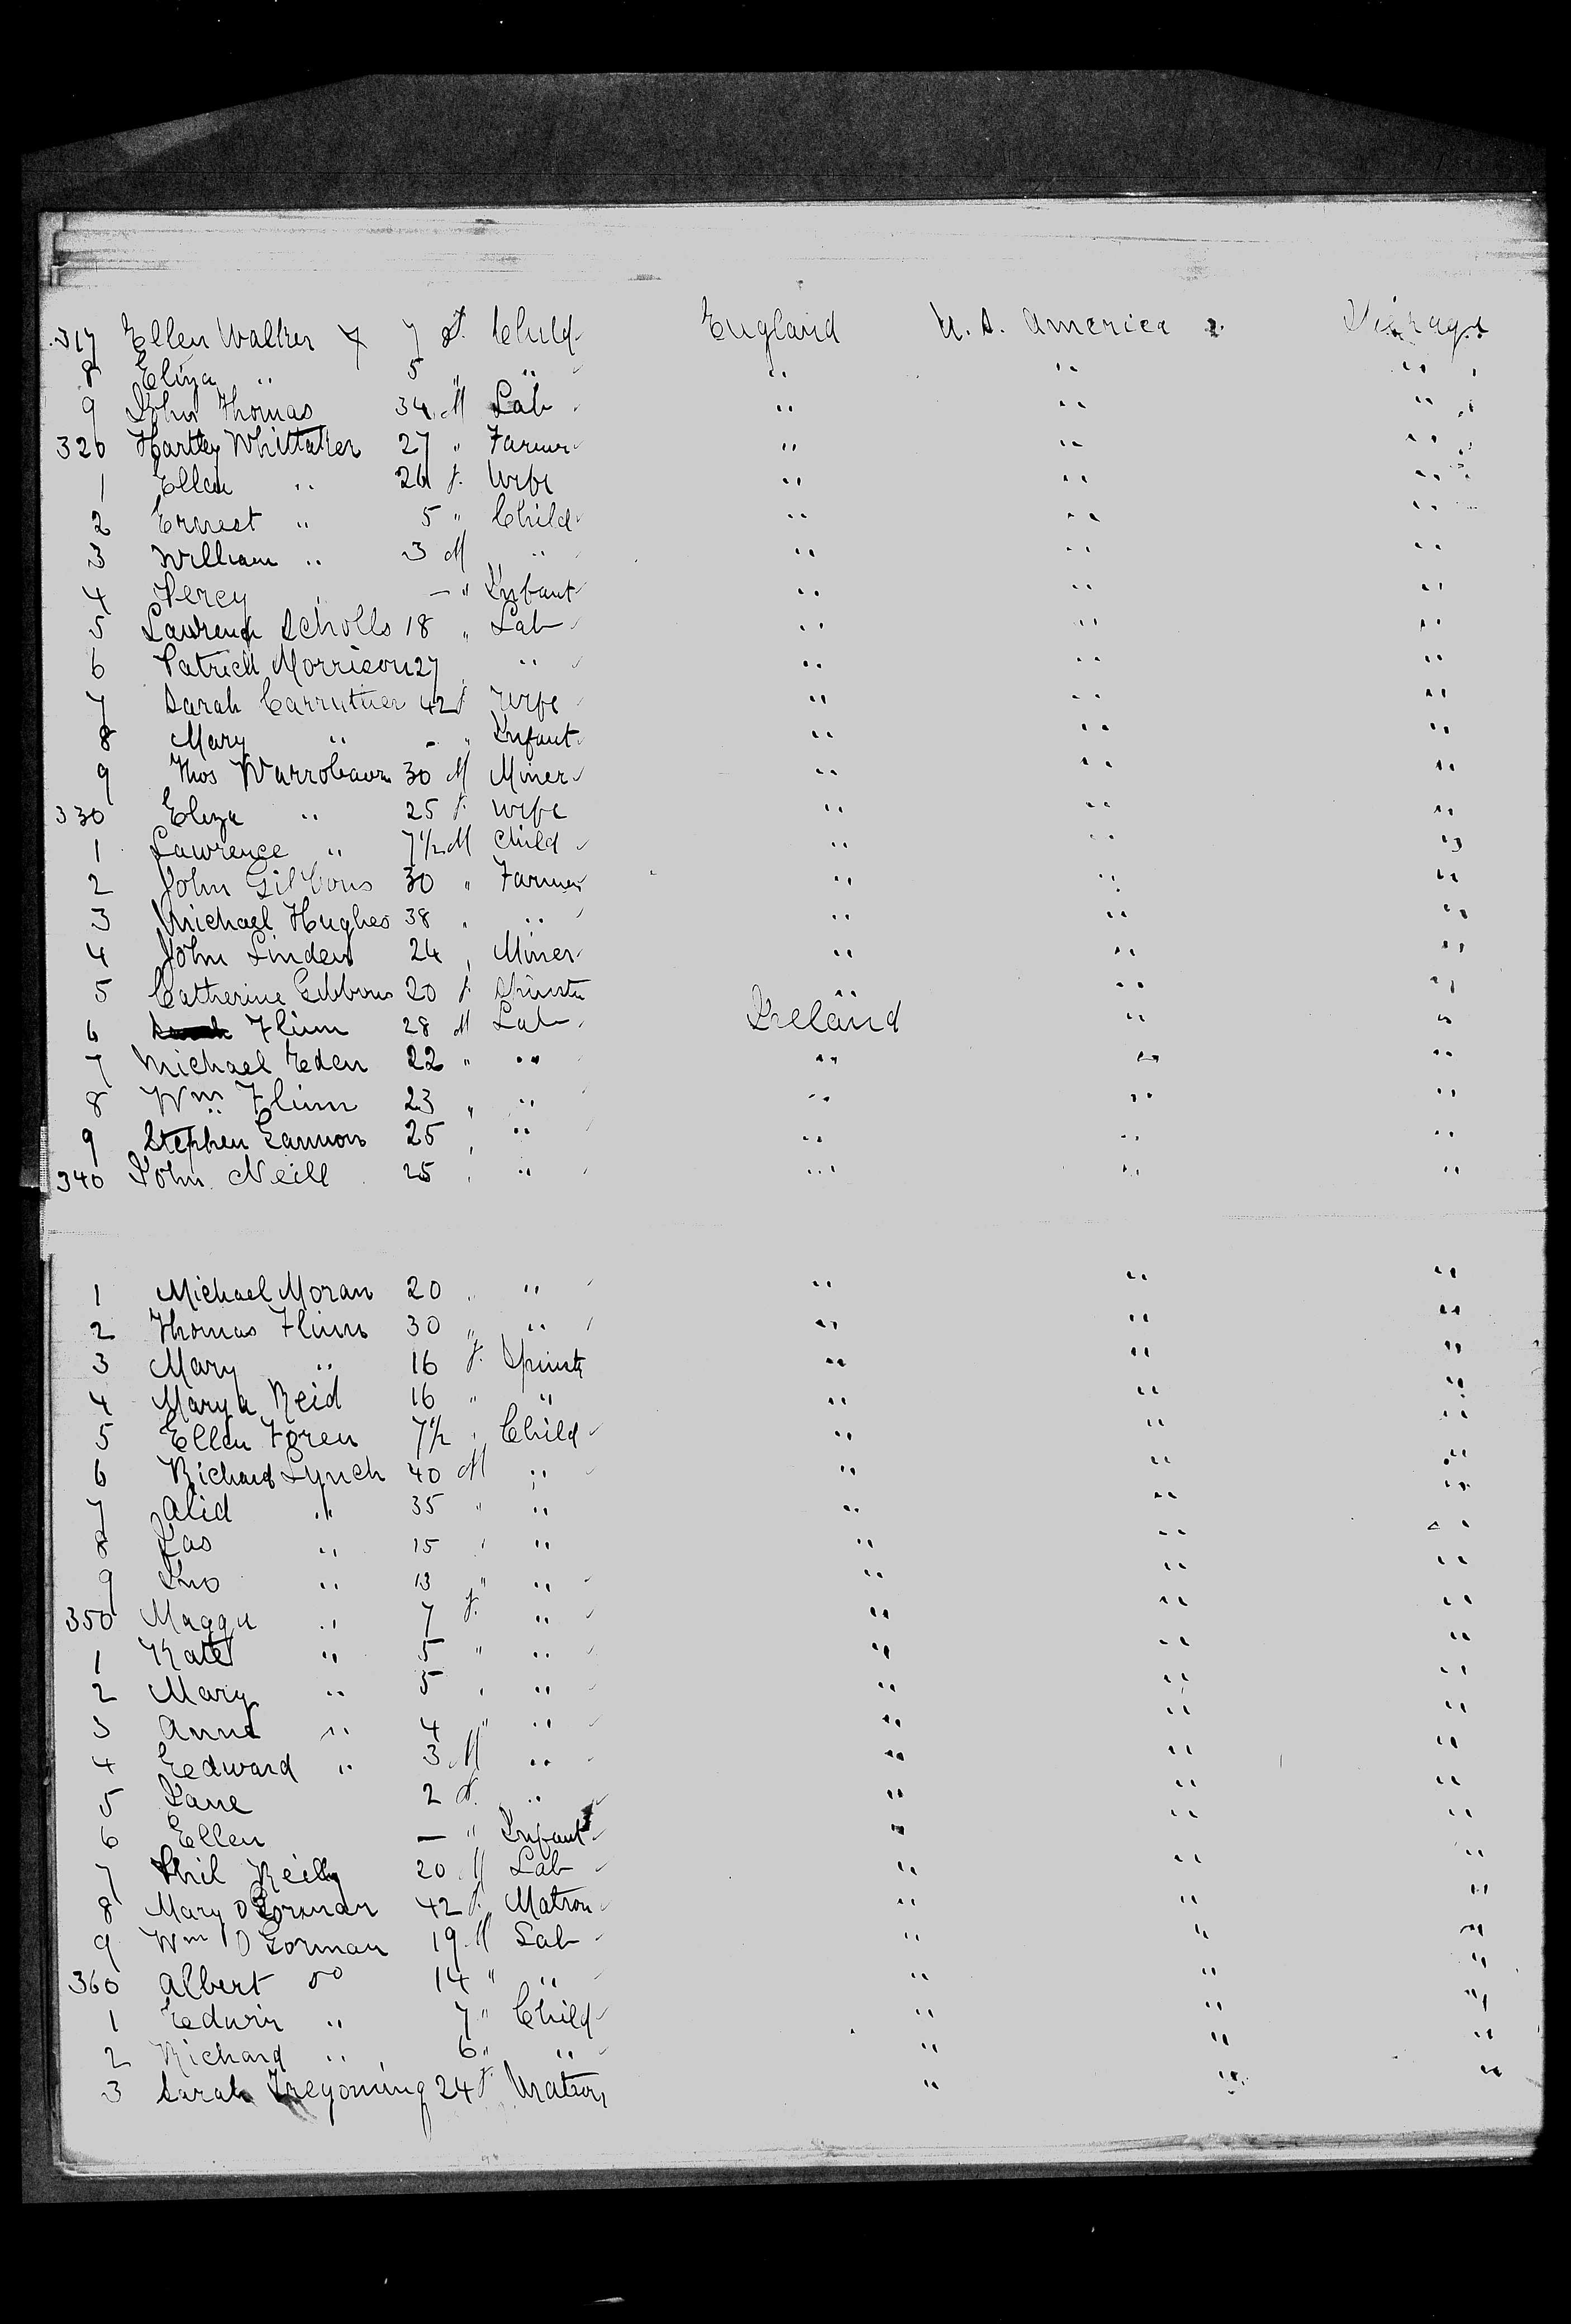 317 Ellen Walker X 7 f. Child England U.S. America Steerage
8 Eliza " 5 " " " " "
9 John Thomas 34 M Lab " " "
320 Hartley Whittaker 27 " Farmer " " "
1 Ellen " 26 f. Wife " " "
2 Ernest " 5 " Child " " "
3 William " 3 M " " " "
4 Percy — " Infant " " "
5 Lawrence Scholls 18 " Lab " " "
6 Patrick Morrison 27 " " " "
7 Sarah Carruther 42 f Wife " " "
8 Mary " - " Infant " " "
9 Thos 30 M Miner " " "
330 Eliza " 25 f. Wife " " "
1 Lawrence " 7½ M Child " " "
2 John Gibbons 30 " Farmer " " "
3 Michael Hughes 38 " " " " "
4 John Linden 24 " Miner " " "
5 Catherine Gibbons 20 f. Spinstr " " "
6 Flinn 28 M Lab Ireland " "
7 Michael Eden 22 " " " " "
8 Wm Flinn 23 " " " " "
9 Stephen Gannon 25 " " " " "
340 John Neill 25 " " " " "
1 Michael Moran 20 " " " " "
2 Thomas Flinn 30 " " " " "
3 Mary " 16 f. Spinstr " " "
4 Mary a Reid 16 " " " " "
5 Ellen Foren 7½ " Child " " "
6 Richard Lynch 40 M " " " "
7 Alid " 35 " " " " "
8 Jas " 15 " " " " "
9 Jno " 13 " " " " "
350 Maggie " 7 f. " " " "
1 Kate " 5 " " " " "
2 Mary " 5 " " " " "
3 Anne " 4 " " " " "
4 Eedward " 3 M " " " "
5 Jane 2 f. " " " "
6 Ellen — " Infant " " "
7 Phil Reilly 20 M Lab " " "
8 Mary O Gorman 42 f. Matron " " "
9 Wm O Gorman 19 M Lab " " "
360 Albert do 14 " " " " "
1 Eedwin " 7 " Child " " "
2 Richard " 6 " " " " "
3 Sarah Tregoning 24 f Matron " " "